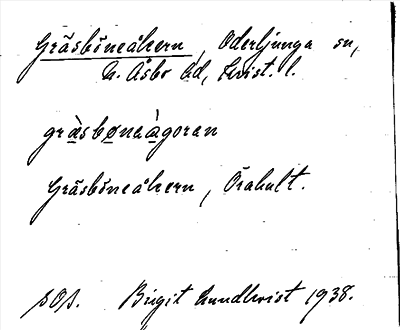 Gräsböneåkern, Oderljunga sn,
N. Åsbo hd, Krist. l.
gràsbønaàgoran
Gräsböneåkern, Örahult.
SOS. Birgit Lundkvist 1938.